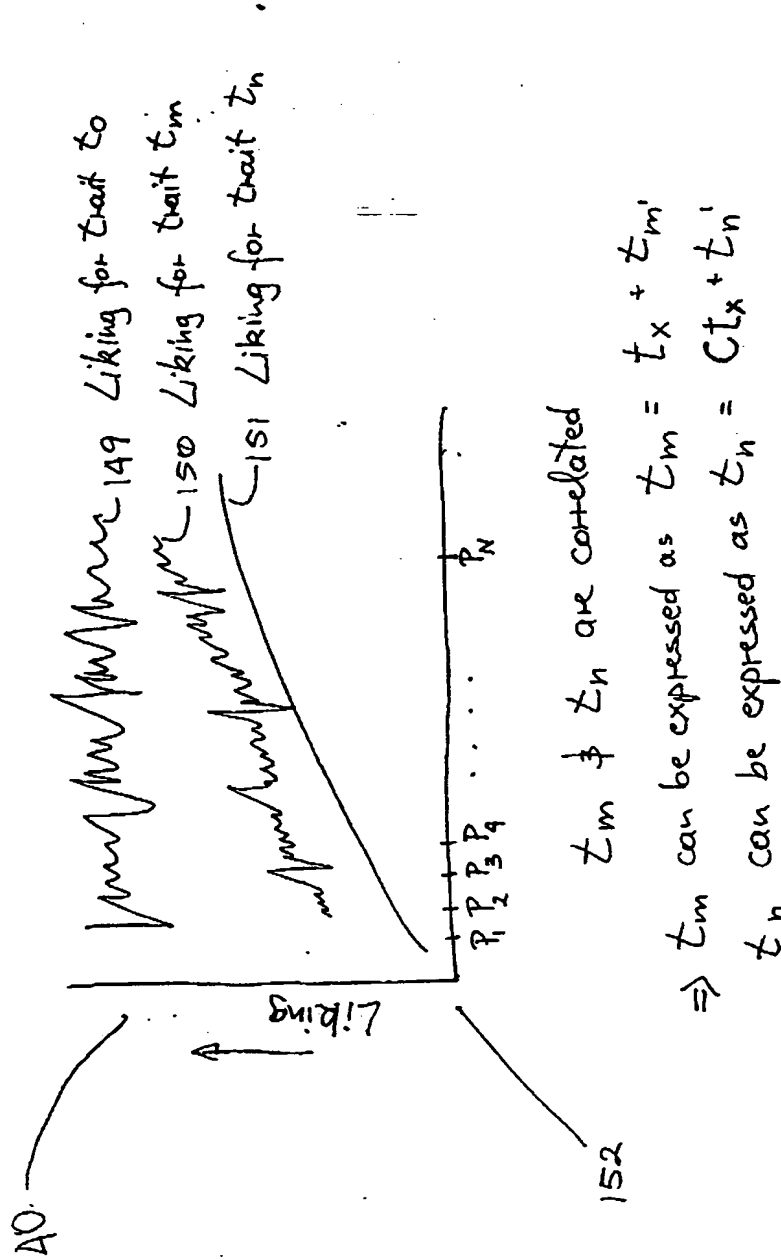 40
149 Liking for trait to
150 Liking for trait tm
151 Liking for trait tn
Liking
P1 P2 P3 P4 . . . . PN
152
tm & tn are correlated
⇒ tm can be expressed as tm = tx + tm'
tn can be expressed as tn = Ctx + tn'